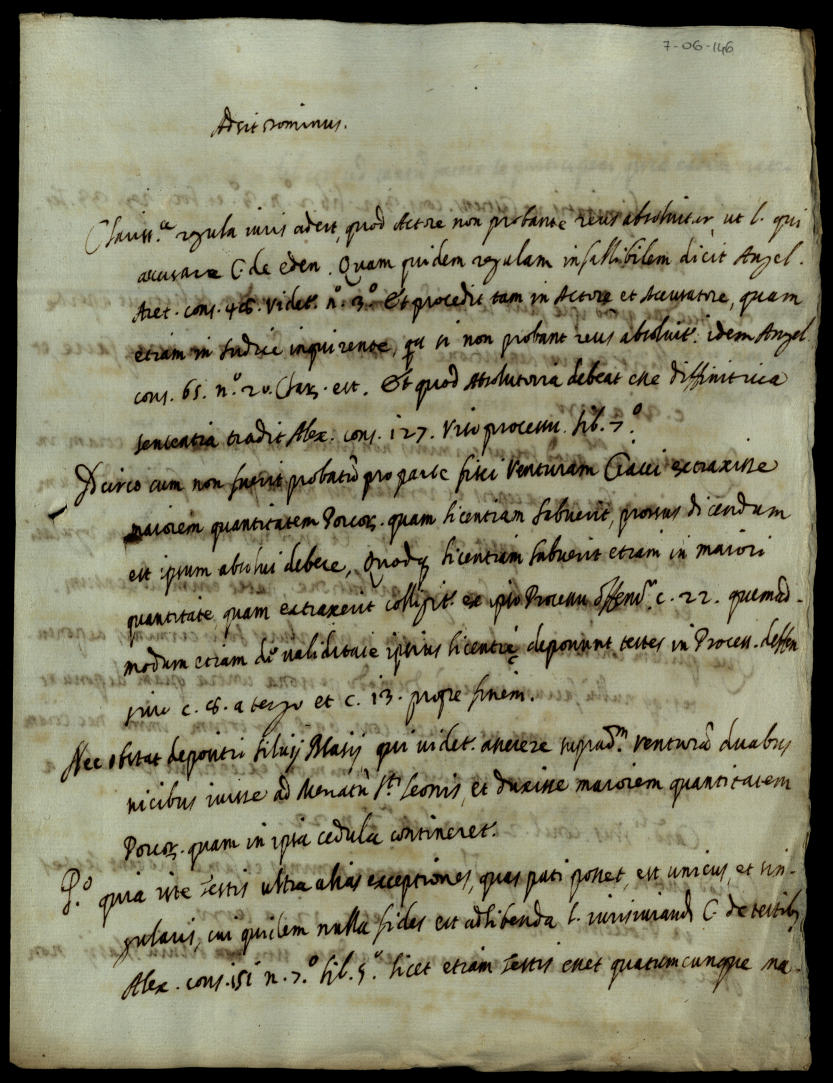 7-06-146
Adsit Dominus.
Clariss.a regula iuris adest, quod Actore non probante reus absoluitur, ut l. qui
accusare C. de eden. Quam quidem regulam infallibilem dicit Angel.
Aret. cons. 48. videt.r n.o 3.o Et procedit tam in Actore et Accusatore, quam
etiam in Iudice inquirente, qa si non probant reus absoluit.r idem Angel
cons. 65. n.o 20. Clar. est. Et quod Absolutoria debeat esse diffinitiua
sententia tradit Alex. cons. 127. viso processu. lib. 7.o
Idcirco cum non fuerit probatū pro parte fisci Venturam extraxisse
maiorem quantitatem Porcor. quam licentiam habuerit, prorsus dicendum
est ipsum absolui debere, Quodq licentiam habuerit etiam in maiori
quantitate quam extraxerit colligit.r ex ipso Processu offens.o c. 22. quemad-
modum etiam de validitate ipsius licentię deponunt testes in Process. deffen
siuo c. 8. a tergo et c. 13. prope finem.
Nec obstat depositi Siluij Masij qui videt.r asserere suprad.m Venturā duabus
uicibus iuisse ad Menatū S.ti Leonis, et duxisse maiorem quantitatem
Porcor. quam in ipsa cedula contineret.r
P.o quia iste Testis ultra alias exceptiones, quas pati posset, est unicus, et sin-
gularis, cui quidem nulla fides est adhibenda l. iurisiurandi C. de testib
Alex. cons. 151 n. 7.o lib. 5.o licet etiam Testis esset quantumcunque na-